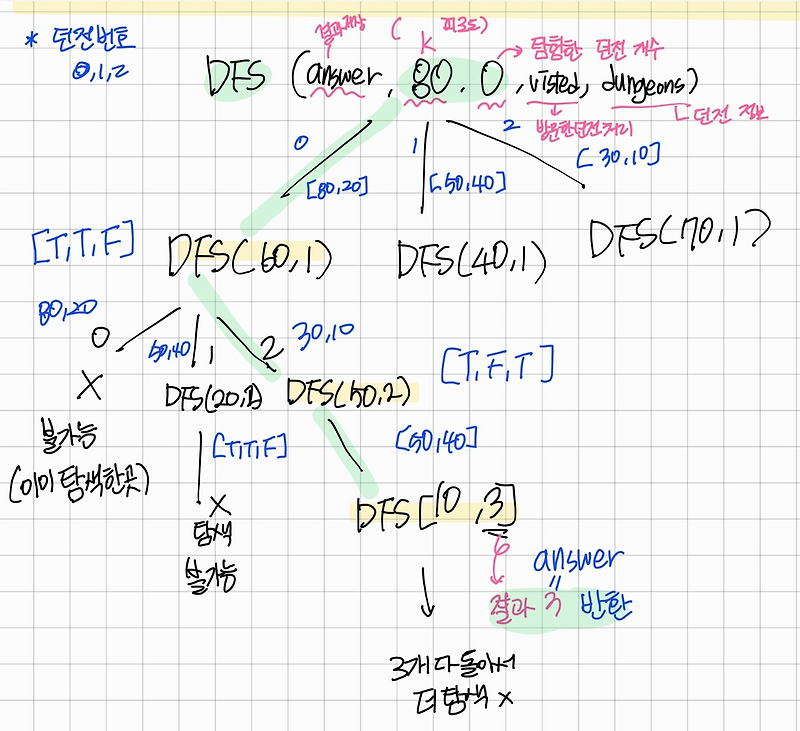 * 던전번호
0,1,2
결과저장 ( 피로도)
K
→ 탐험한 던전 개수
DFS (answer, 80. 0, visted, dungeons)
방문한던전처리
던전 정보
0 1 2
[80,20] [50,40] [30,10]
[T,T,F]
DFS(60,1) DFS(40,1) DFS(70,1)
80,20
0 50,40 1 2 30,10
X
DFS(20,2) DFS(50,2) [T,F,T]
불가능
(이미 탐색한곳)
[T,T,F] [50,40]
X
탐색
불가능
DFS[10,3]
answer
결과 3 반환
3개 다 돌아서
더 탐색 x